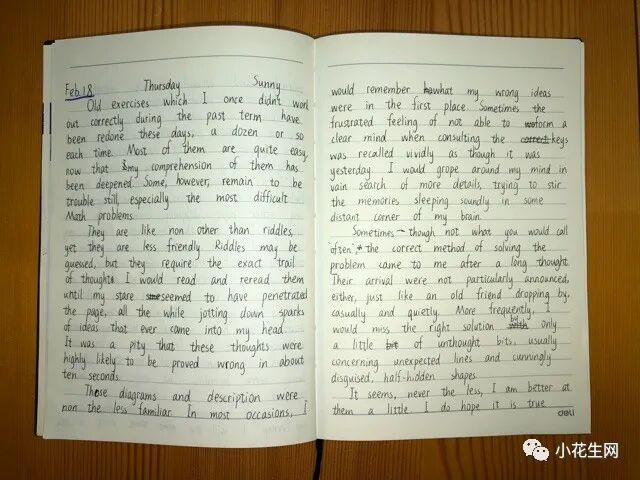 Feb.18 Thursday Sunny
Old exercises which I once didn't work
out correctly during the past term have
been redone these days, a dozen or so
each time. Most of them are quite easy,
now that my comprehension of them has
been deepened. Some, however, remain to be
trouble still, especially the most difficult
Math problems.
They are like non other than riddles,
yet they are less friendly. Riddles may be
guessed, but they require the exact trail
of thought. I would read and reread them
until my stare seemed to have penetrated
the page, all the while jotting down sparks
of ideas that ever came into my head.
It was a pity that these thoughts were
highly likely to be proved wrong in about
ten seconds.
Those diagrams and description were
non the less familiar. In most occasions, I
would remember what my wrong ideas
were in the first place. Sometimes the
frustrated feeling of not able to form a
clear mind when consulting the keys
was recalled vividly as though it was
yesterday. I would grope around my mind in
vain search of more details, trying to stir
the memories sleeping soundly in some
distant corner of my brain.
Sometimes — though not what you would call
"often", the correct method of solving the
problem came to me after a long thought.
Their arrival were not particularly announced,
either, just like an old friend dropping by,
casually and quietly. More frequently, I
would miss the right solution by only
a little bit of unthought bits, usually
concerning unexpected lines and cunningly
disguised, half-hidden shapes.
It seems, never the less, I am better at
them a little. I do hope it is true.
deli
小花生网